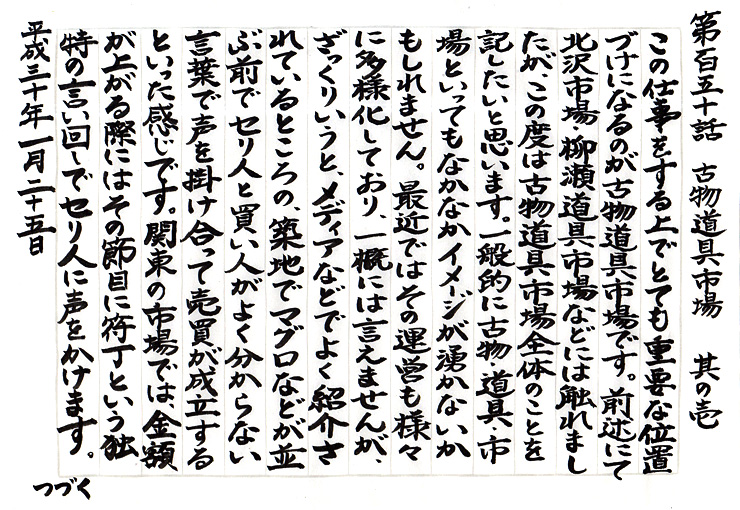 第百五十話　古物道具市場　其の壱
この仕事をする上でとても重要な位置
づけになるのが古物道具市場です。前述にて
北沢市場・柳瀬道具市場などには触れまし
たが、この度は古物道具市場全体のことを
記したいと思います。一般的に古物・道具・市
場といってもなかなかイメージが湧かないか
もしれません。最近ではその運営も様々
に多様化しており、一概には言えませんが、
ざっくりいうと、メディアなどでよく紹介さ
れているところの、築地でマグロなどが並
ぶ前でセリ人と買い人がよく分からない
言葉で声を掛け合って売買が成立する
といった感じです。関東の市場では、金額
が上がる際にはその節目に符丁という独
特の言い回しでセリ人に声をかけます。
平成三十年一月二十五日
つづく